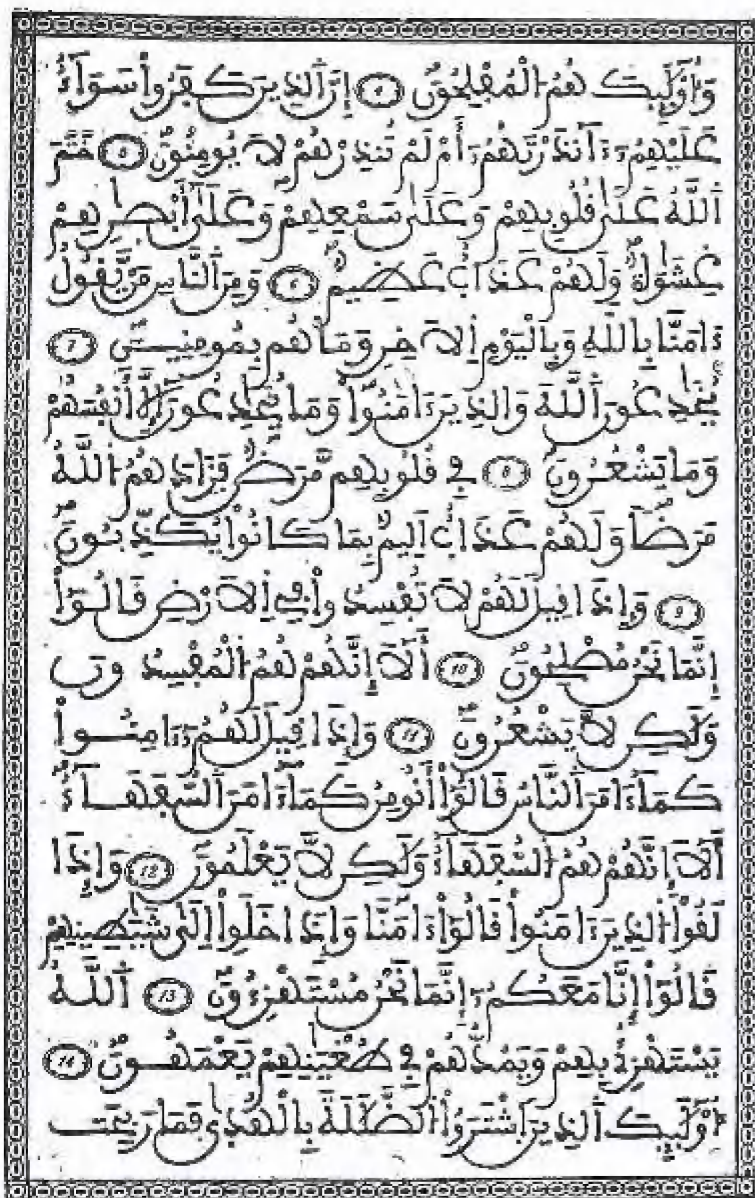 وَأُوْلَٰٓئِكَ هُمُ الْمُفْلِحُونَ 4 إِنَّ اَ۬لذِينَ كَفَرُواْ سَوَآءٌ
عَلَيْهِمُۥٓ ءَآنذَرْتَهُمُۥٓ أَمْ لَمْ تُنذِرْهُمْ لَا يُومِنُونَ 5 خَتَمَ
اَ۬للَّهُ عَلَىٰ قُلُوبِهِمْ وَعَلَىٰ سَمْعِهِمْ وَعَلَىٰٓ أَبْصٰ۪رِهِمْ
غِشَٰوَةٌ وَلَهُمْ عَذَابٌ عَظِيمٌ 6 وَمِنَ اَ۬لنَّاسِ مَنْ يَّقُولُ
ءَامَنَّا بِاللَّهِ وَبِالْيَوْمِ اِ۬لَاخِرِ وَمَا هُم بِمُومِنِينَ 7
يُخَٰدِعُونَ اَ۬للَّهَ وَالذِينَ ءَامَنُواْ وَمَا يُخَٰدِعُونَ إِلَّآ أَنفُسَهُمْ
وَمَا يَشْعُرُونَ 8 فِي قُلُوبِهِم مَّرَضٌ فَزَادَهُمُ اُ۬للَّهُ
مَرَضاً وَلَهُمْ عَذَابٌ اَلِيمٌ بِمَا كَانُواْ يُكَذِّبُونَ
9 وَإِذَا قِيلَ لَهُمْ لَا تُفْسِدُواْ فِي اِ۬لَارْضِ قَالُوٓاْ
إِنَّمَا نَحْنُ مُصْلِحُونَ 10 أَلَآ إِنَّهُمْ هُمُ اُ۬لْمُفْسِدُونَ
وَلَٰكِن لَّا يَشْعُرُونَ 11 وَإِذَا قِيلَ لَهُمُۥٓ ءَامِنُواْ
كَمَآ ءَامَنَ اَ۬لنَّاسُ قَالُوٓاْ أَنُومِنُ كَمَآ ءَامَنَ اَ۬لسُّفَهَآءُ
أَلَآ إِنَّهُمْ هُمُ اُ۬لسُّفَهَآءُ وَلَٰكِن لَّا يَعْلَمُونَ 12 وَإِذَا
لَقُواْ اُ۬لذِينَ ءَامَنُواْ قَالُوٓاْ ءَامَنَّا وَإِذَا خَلَوِاْ اِلَىٰ شَيَٰطِينِهِمْ
قَالُوٓاْ إِنَّا مَعَكُمُۥٓ إِنَّمَا نَحْنُ مُسْتَهْزِءُونَ 13 اَ۬للَّهُ
يَسْتَهْزِئُ بِهِمْ وَيَمُدُّهُمْ فِي طُغْيَٰنِهِمْ يَعْمَهُونَ 14
أُوْلَٰٓئِكَ اَ۬لذِينَ اَ۪شْتَرَوُاْ اُ۬لضَّلَٰلَةَ بِالْهُدَىٰ فَمَا رَبِحَت